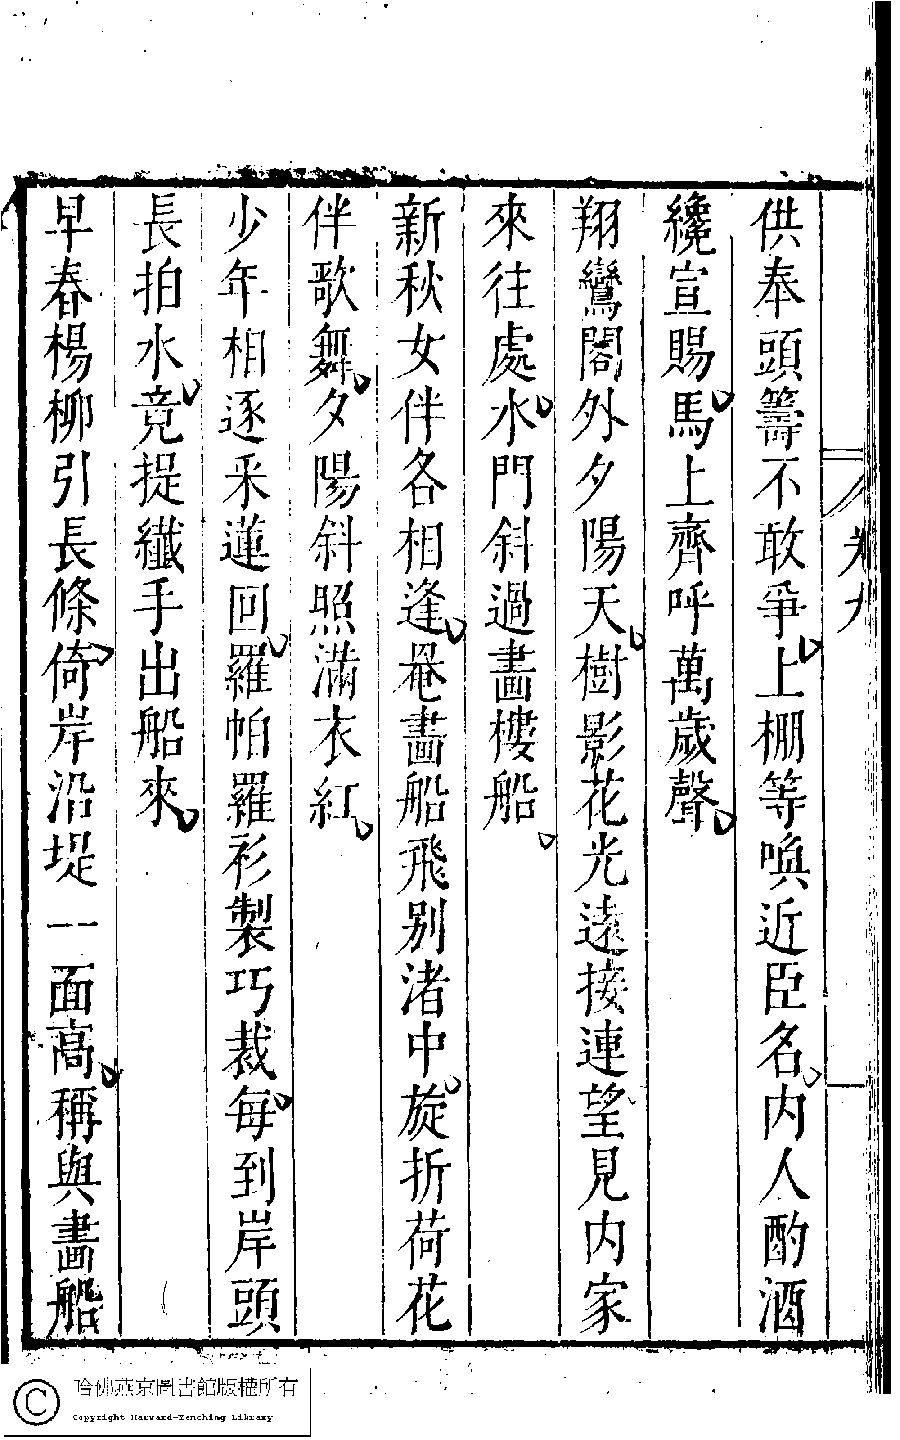 供奉頭籌不敢爭上棚等喚近臣名内人酌酒
纔宣賜馬上齊呼萬歲聲
翔鸞閣外夕陽天樹影花光遠接連望見内家
來往處水門斜過畫樓船
新秋女伴各相逢罨畫船飛别渚中旋折荷花
伴歌舞夕陽斜照滿衣紅
少年相逐采蓮回羅帕羅衫製巧裁每到岸頭
長拍水竟提纖手出船來
早春楊柳引長條倚岸沿堤一面高稱與畫船
卷九
哈佛燕京圖書館版權所有
Copyright Harvard-Yenching Library